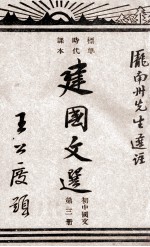 龐南州先生選注
標準
時代
課本
建國文選
初中國文
第三冊
王公度題